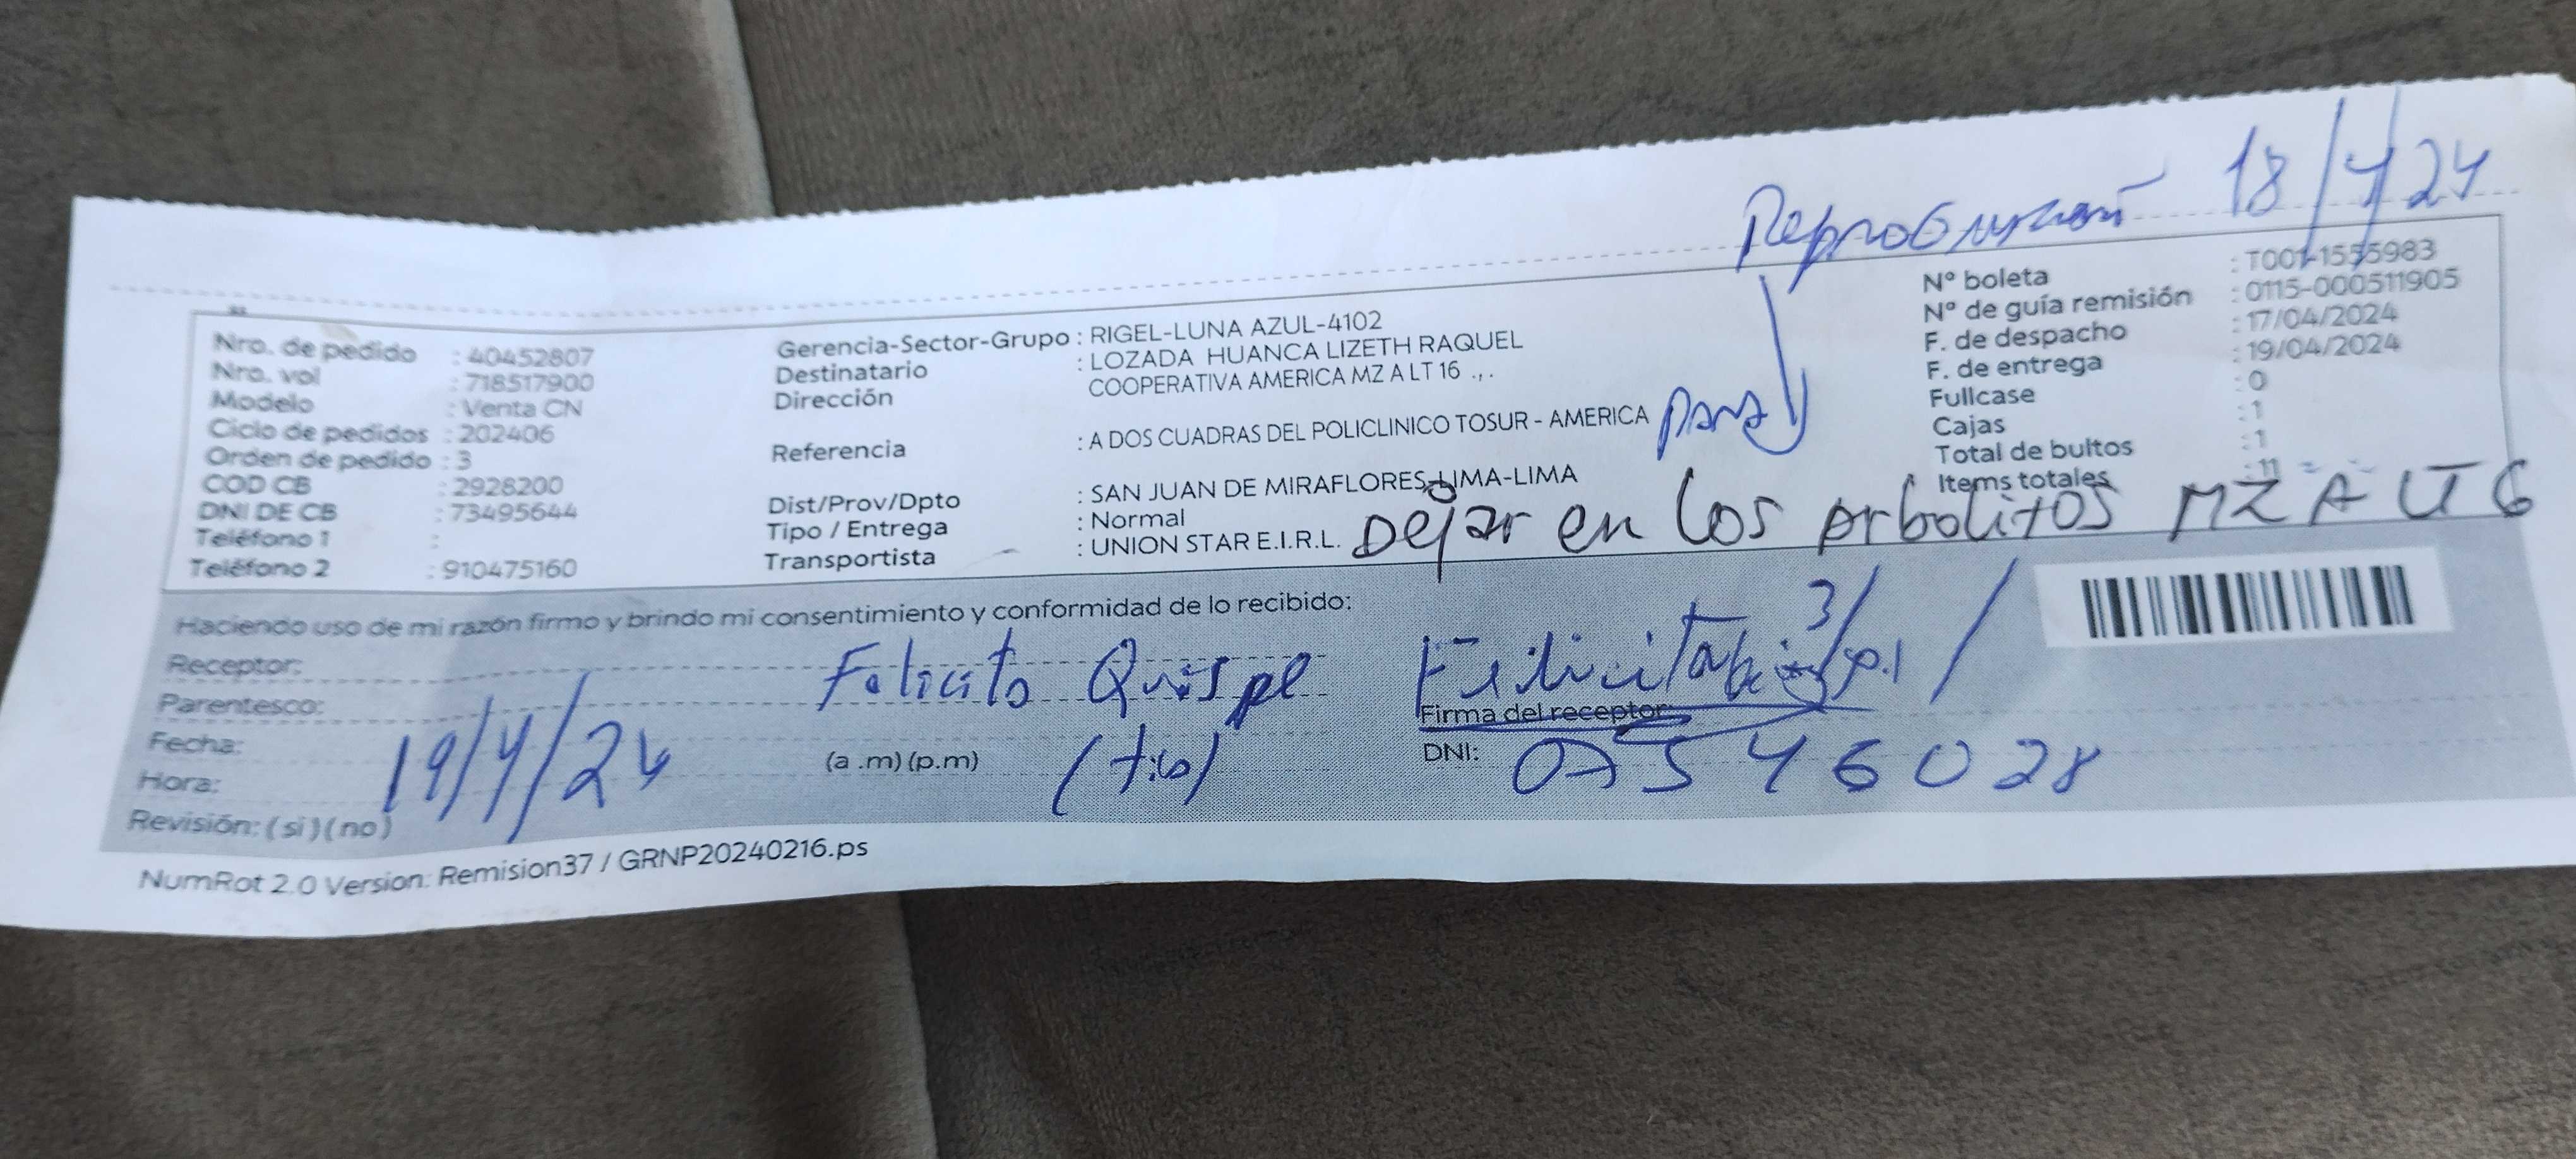 Reprogramación 18/4/24
Nro. de pedido : 40452807
Nro. vol : 718517900
Modelo : Venta CN
Ciclo de pedidos : 202406
Orden de pedido : 3
COD CB : 2928200
DNI DE CB : 73495644
Teléfono 1 :
Teléfono 2 : 910475160
Gerencia-Sector-Grupo : RIGEL-LUNA AZUL-4102
Destinatario : LOZADA HUANCA LIZETH RAQUEL
Dirección COOPERATIVA AMERICA MZ A LT 16 .,.
Referencia : A DOS CUADRAS DEL POLICLINICO TOSUR - AMERICA
Dist/Prov/Dpto : SAN JUAN DE MIRAFLORES-LIMA-LIMA
Tipo / Entrega : Normal
Transportista : UNION STAR E.I.R.L.
N° boleta : T001-1555983
N° de guía remisión : 0115-000511905
F. de despacho : 17/04/2024
F. de entrega : 19/04/2024
Fullcase : 0
Cajas : 1
Total de bultos : 1
Items totales : 11
para
Dejar en los arbolitos MZ A LT 6
Haciendo uso de mi razón firmo y brindo mi consentimiento y conformidad de lo recibido:
Receptor: Quispe
Parentesco:
Fecha: 19/4/24
Hora: (a .m) (p.m) (tio)
Revisión: ( si ) ( no )
Firma del receptor:
DNI: 07546028
NumRot 2.0 Version: Remision37 / GRNP20240216.ps